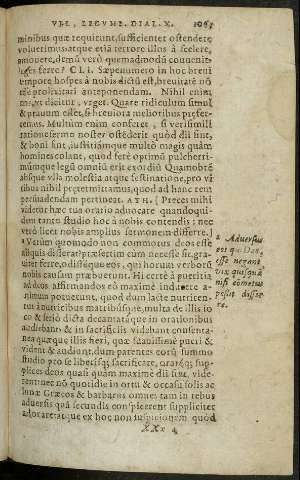 VEL LEGVM. DIAL. X. 1065
minibus quæ requirunt, sufficienter ostendere
voluerimus: atque etiã terrore illos à scelere,
leges ferre? CLI. Sæpenumero in hoc brevi
tempore hospes à nobis dictũ est, brevitatẽ nõ
esse prolixitati anteponendam. Nihil enim
dicitur, urget. Quare ridiculum simul
& prauum esset, si breuiora melioribus præfer-
remus. Multum enim confert, si verisimili
ratione sermo noster ostẽderit quòd dii sint,
& boni sint, iustitiámque multò magis quàm
homines colant, quod ferè optimũ pulcherri-
mũmque legũ omniũ erit exordiũ. Quamobrẽ
absque vlla molestia atque festinatione, pro vi
ribus nihil prætermittamus, quod ad hanc rem
persuadendam pertineat. ATH. Preces mihi
videtur hæc tua oratio aduocare: quandoqui-
dem tanto studio hoc à nobis contendis: nec
verò licet nobis amplius sermonem differre.
Verùm quomodo non commotus deos esse
aliquis disserat? præsertim cùm necesse sit, gra-
uiter ferre, odisséque eos, qui horum verborũ
nobis causam præbuerunt. Hi certè à pueritia
ad deos affirmandos eò maximè inducere a-
nimum potuerunt, quòd dum lacte nutriren-
tur, à nutricibus matribúsque, multa de illis io
co & seriò dicta decantatáque in orationibus
audiebant: & in sacrificiis videbant consenta-
nea quæque illis fieri, quæ suauissimè pueri &
vident & audiunt, dum parentes eorũ summo
studio pro se liberísq; sacrificare, oraréq; sup-
plices deos quasi quàm maximè dii sint, vide-
rent: nec nõ quotidie in ortu & occasu solis ac
lunæ Græcos & barbaros omnes tam in rebus
aduersis quã secundis conspicerent suppliciter
adorare: atque ex hoc non suspicionem quod
XXx 4
Aduersus
eos qui Deos
esse negant
vix quisquã
nisi cõmotus
possit disse-
rere.